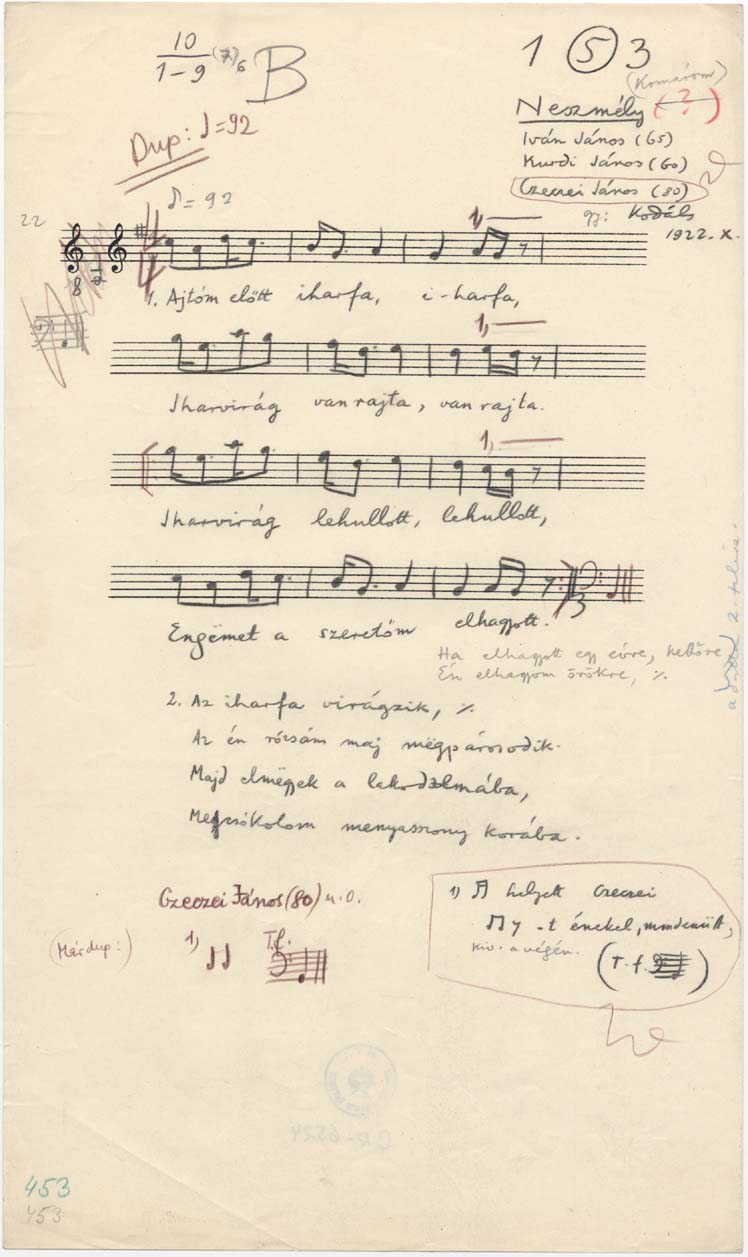 10
1-9 (7) 6 B
1 5 3
(Komárom)
Neszmély (?)
Iván János (65)
Kurdi János (60)
Czeczei János (80)
gy: Kodály
1922. X.
Dup: ♩=92
♪= 92
22
8
4
4
1, 
1. Ajtóm előtt iharfa, i-harfa,
1, 
Iharvirág van rajta, van rajta.
1, 
Iharvirág lehullott, lehullott,
Engёmet a szeretőm elhagyott.
Ha elhagyott egy évre, kettőre
Én elhagyom örökre, ./.
2. Az iharfa virágzik, ./.
Az én rózsám maj mëgpárosodik.
Majd elmëgek a lakodalmába,
Megcsókolom menyasszony korába.
Czeczei János (80) u.o.
(Már dup:)
1) T.f.
1) ♫ helyett Czeczei
♫ γ -t énekel, mindenütt,
kiv. a végén.
(T.f. )
453
453